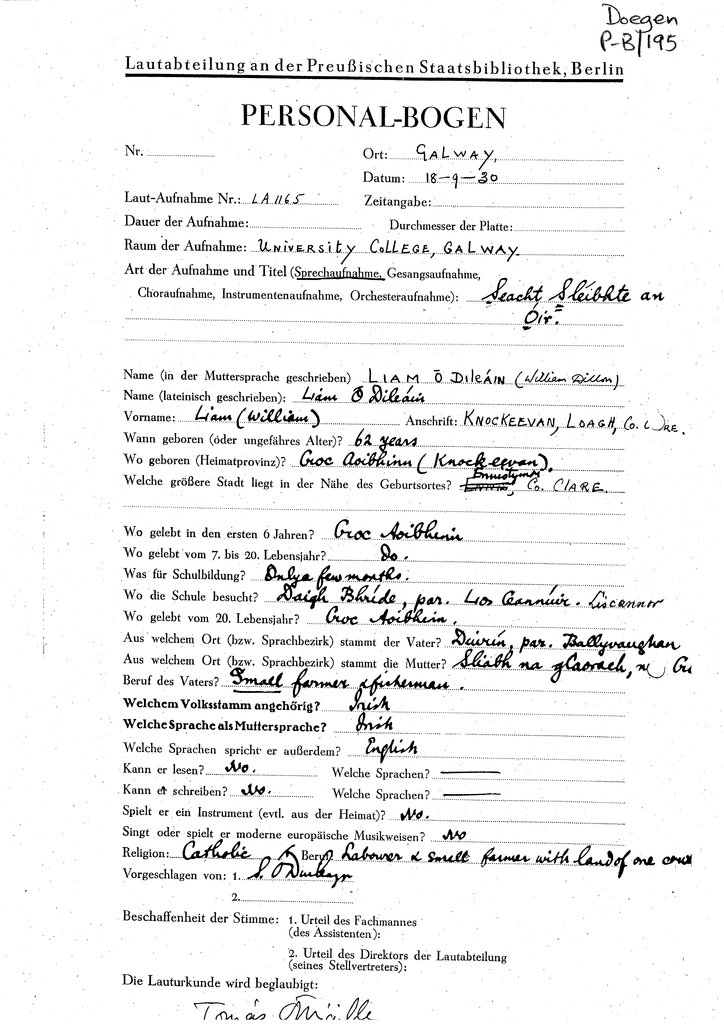 Doegen
P-B/195
Lautabteilung an der Preußischen Staatsbibliothek, Berlin
PERSONAL-BOGEN
Nr.
Ort: GALWAY,
Datum: 18-9-30
Laut-Aufnahme Nr.: LA 1165
Zeitangabe:
Dauer der Aufnahme:
Durchmesser der Platte:
Raum der Aufnahme: UNIVERSITY COLLEGE, GALWAY
Art der Aufnahme und Titel (Sprechaufnahme, Gesangsaufnahme,
Choraufnahme, Instrumentenaufnahme, Orchesteraufnahme): Seacht Sleibhte an
Óir.
Name (in der Muttersprache geschrieben) LIAM Ó DILEÁIN (William Dillon)
Name (lateinisch geschrieben): Liám Ó Dileáin
Vorname: Liam (William)
Anschrift: KNOCKEEVAN, LOAGH, Co.
Wann geboren (oder ungefähres Alter)? 62 years
Wo geboren (Heimatprovinz)? Croc Aoibhinn (Knockeevan).
Welche größere Stadt liegt in der Nähe des Geburtsortes? Ennistymon, Co. CLARE.
Wo gelebt in den ersten 6 Jahren? Croc Aoibhinn
Wo gelebt vom 7. bis 20. Lebensjahr? Do.
Was für Schulbildung? Only a few months.
Wo die Schule besucht? Daigh Bhríde, par. Lios Ceannúir. Liscannor
Wo gelebt vom 20. Lebensjahr? Croc Aoibhinn.
Aus welchem Ort (bzw. Sprachbezirk) stammt der Vater? Duirín, par. Ballyvaughan
Aus welchem Ort (bzw. Sprachbezirk) stammt die Mutter? Sliabh na glaorach,
Beruf des Vaters? Small farmer & fisherman.
Welchem Volksstamm angehörig? Irish
Welche Sprache als Muttersprache? Irish
Welche Sprachen spricht er außerdem? English
Kann er lesen? No.
Welche Sprachen? ———
Kann er schreiben? No.
Welche Sprachen? ———
Spielt er ein Instrument (evtl. aus der Heimat)? No.
Singt oder spielt er moderne europäische Musikweisen? No
Religion: Catholic
Beruf: Labourer & small farmer with land of one cow
Vorgeschlagen von: 1.
2.
Beschaffenheit der Stimme: 1. Urteil des Fachmannes
(des Assistenten):
2. Urteil des Direktors der Lautabteilung
(seines Stellvertreters):
Die Lauturkunde wird beglaubigt:
Tomás Ó Máille